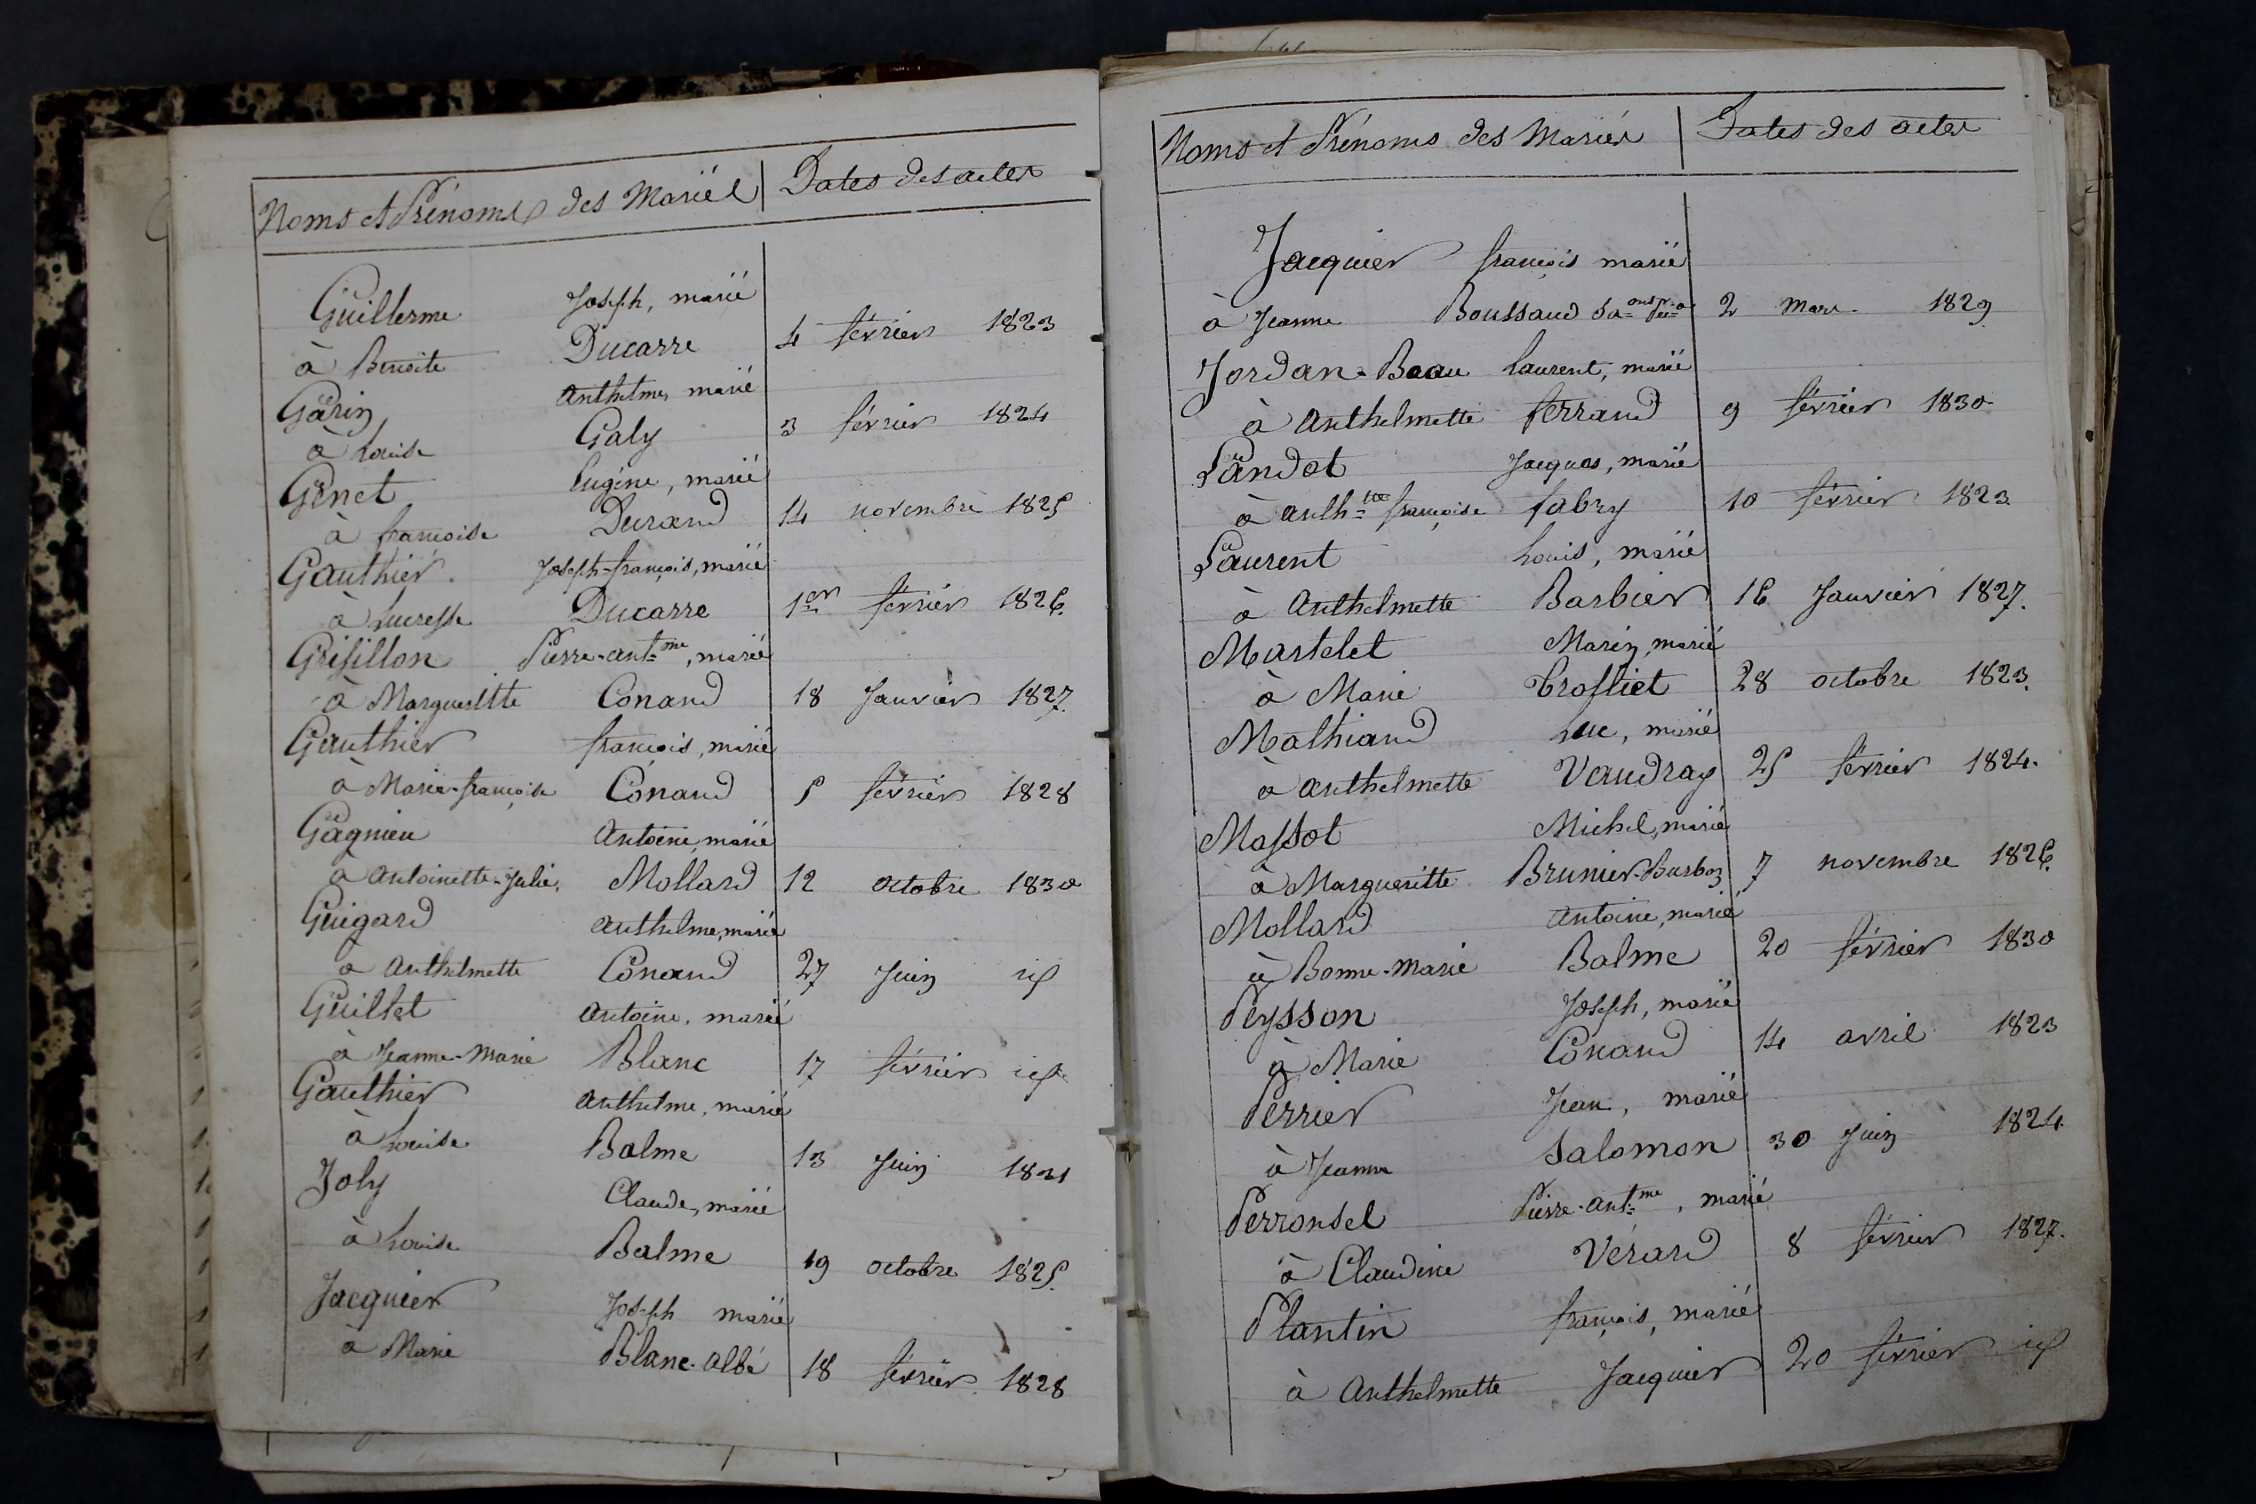 Noms et Prénoms des Mariés Dates des actes
Guillerme Joseph, marié
à Benoite Ducarre 4 février 1823
Garin Anthelme, marié
à Louise Galy 3 février 1824
Genet Eugène, marié
à françoise Durand 14 novembre 1825
Gauthier Joseph-françois, marié
à Lucresse Ducarre 1er février 1826
Grisillon Pierre-antme, marié
à Margueritte Conand 18 Janvier 1827
Gauthier françois, marié
à Marie-françoise Conand 5 février 1828
Gagnieu Antoine, marié
à antoinette-Julie, Mollard 12 octobre 1830
Guigard Anthelme, marié
à Anthelmette Conand 27 Juin id
Guillet Antoine, marié
à Jeanne-Marie Blanc 17 février id
Gauthier Anthelme, marié
à Louise Balme 13 Juin 1831
Joly Claude, marié
à Louise Balme 19 octobre 1825
Jacquier Joseph marié
à Marie Blanc-Albé 18 février 1828
Noms et Prénoms des Mariés Dates des actes
Jacquier françois marié
à Jeanne Boussand 2 Mars 1829
Jordan-Beau Laurent, marié
à Anthelmette ferrand 9 février 1830
Landot Jacques, marié
à Anthtte françoise fabry 10 février 1823
Laurent Louis, marié
à Anthelmette Barbier 16 Janvier 1827.
Martelet Marin, marié
à Marie Trolliet 28 octobre 1823
Mathiand Luc, marié
à anthelmette Vaudray 25 février 1824.
Massot Michel, marié
à Margueritte Brunier-Burboz 7 novembre 1826
Mollard Antoine, marié
à Bonne-Marie Balme 20 février 1830
Peysson Joseph, marié
à Marie Conand 14 avril 1823
Perrier Jean, marié
à Jeanne Salomon 30 Juin 1824
Perronsel Pierre-antme, marié
à Claudine Vérard 8 février 1827.
Plantin françois, marié
à Anthelmette Jacquier 20 février id